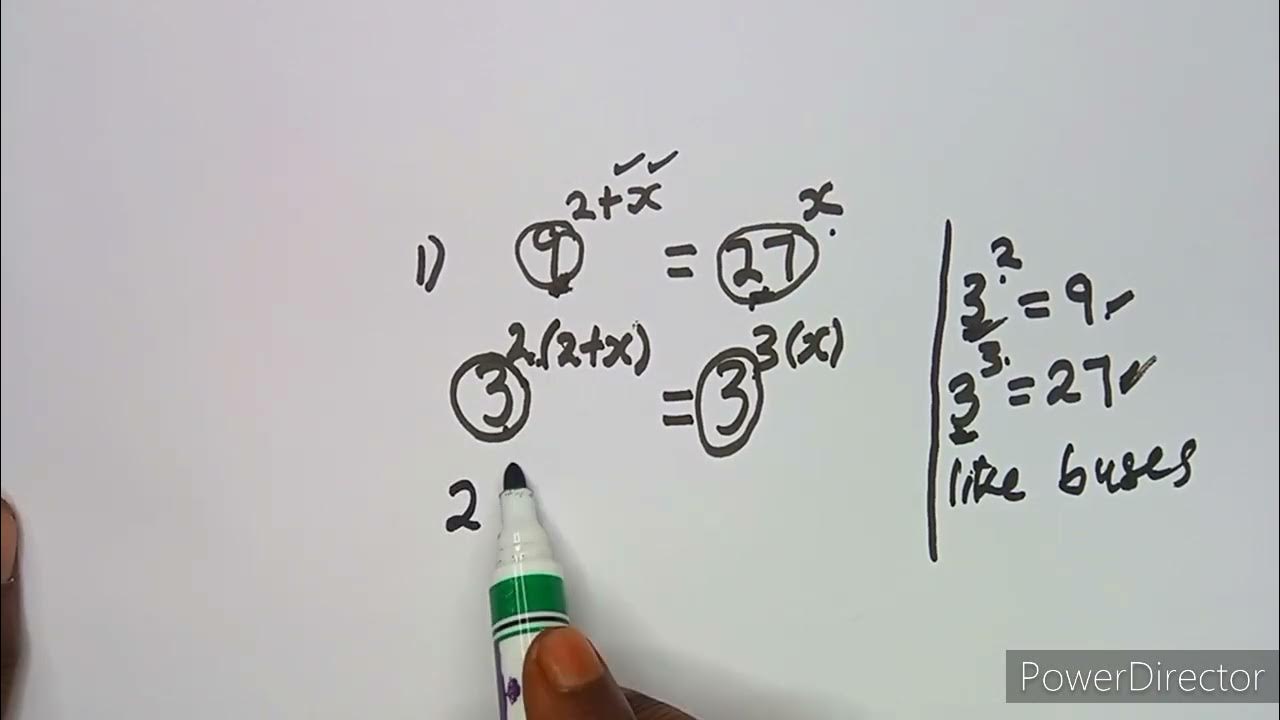 1) 9^{2+x} = 27^{x}
3^{2.(2+x)} = 3^{3(x)}
2
3^{2} = 9
3^{3} = 27
like buses
PowerDirector